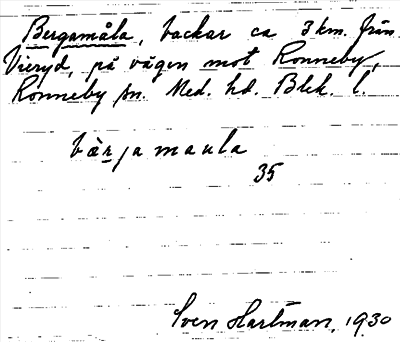 Bergamåla, backar ca 3 km. från
Vieryd, på vägen mot Ronneby,
Ronneby sn. Med. hd. Blek. l.
bærjamaula
35
Sven Hartman, 1930